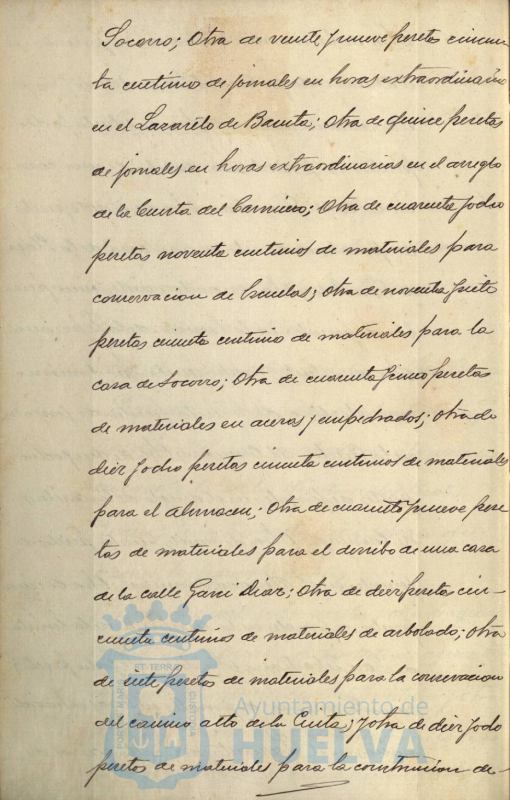 Socorro; Otra de veinte y nueve pesetas cincuen-
ta centimos de jornales en horas extraordinarias
en el Lazareto de Bacuta; Otra de quince pesetas
de jornales en horas extraordinarias en el arreglo
de la Cuesta del Carnicero; Otra de cuarenta y ocho
pesetas noventa centimos de materiales para
conservacion de Escuelas; Otra de noventa y siete
pesetas cincuenta centimos de materiales para la
casa de Socorro; Otra de cuarenta y cinco pesetas
de materiales en aceras y empedrados; Otra de
diez y ocho pesetas cincuenta centimos de materiales
para el almacen; Otra de cuarenta y nueve pese-
tas de materiales para el derribo de una casa
de la calle Garci Diaz; Otra de diez pesetas cin-
cuenta centimos de materiales de arbolado; Otra
de siete pesetas de materiales para la conservacion
del camino alto de la Cinta; y otra de diez y ocho
pesetas de materiales para la construccion de-
Ayuntamiento de
HUELVA